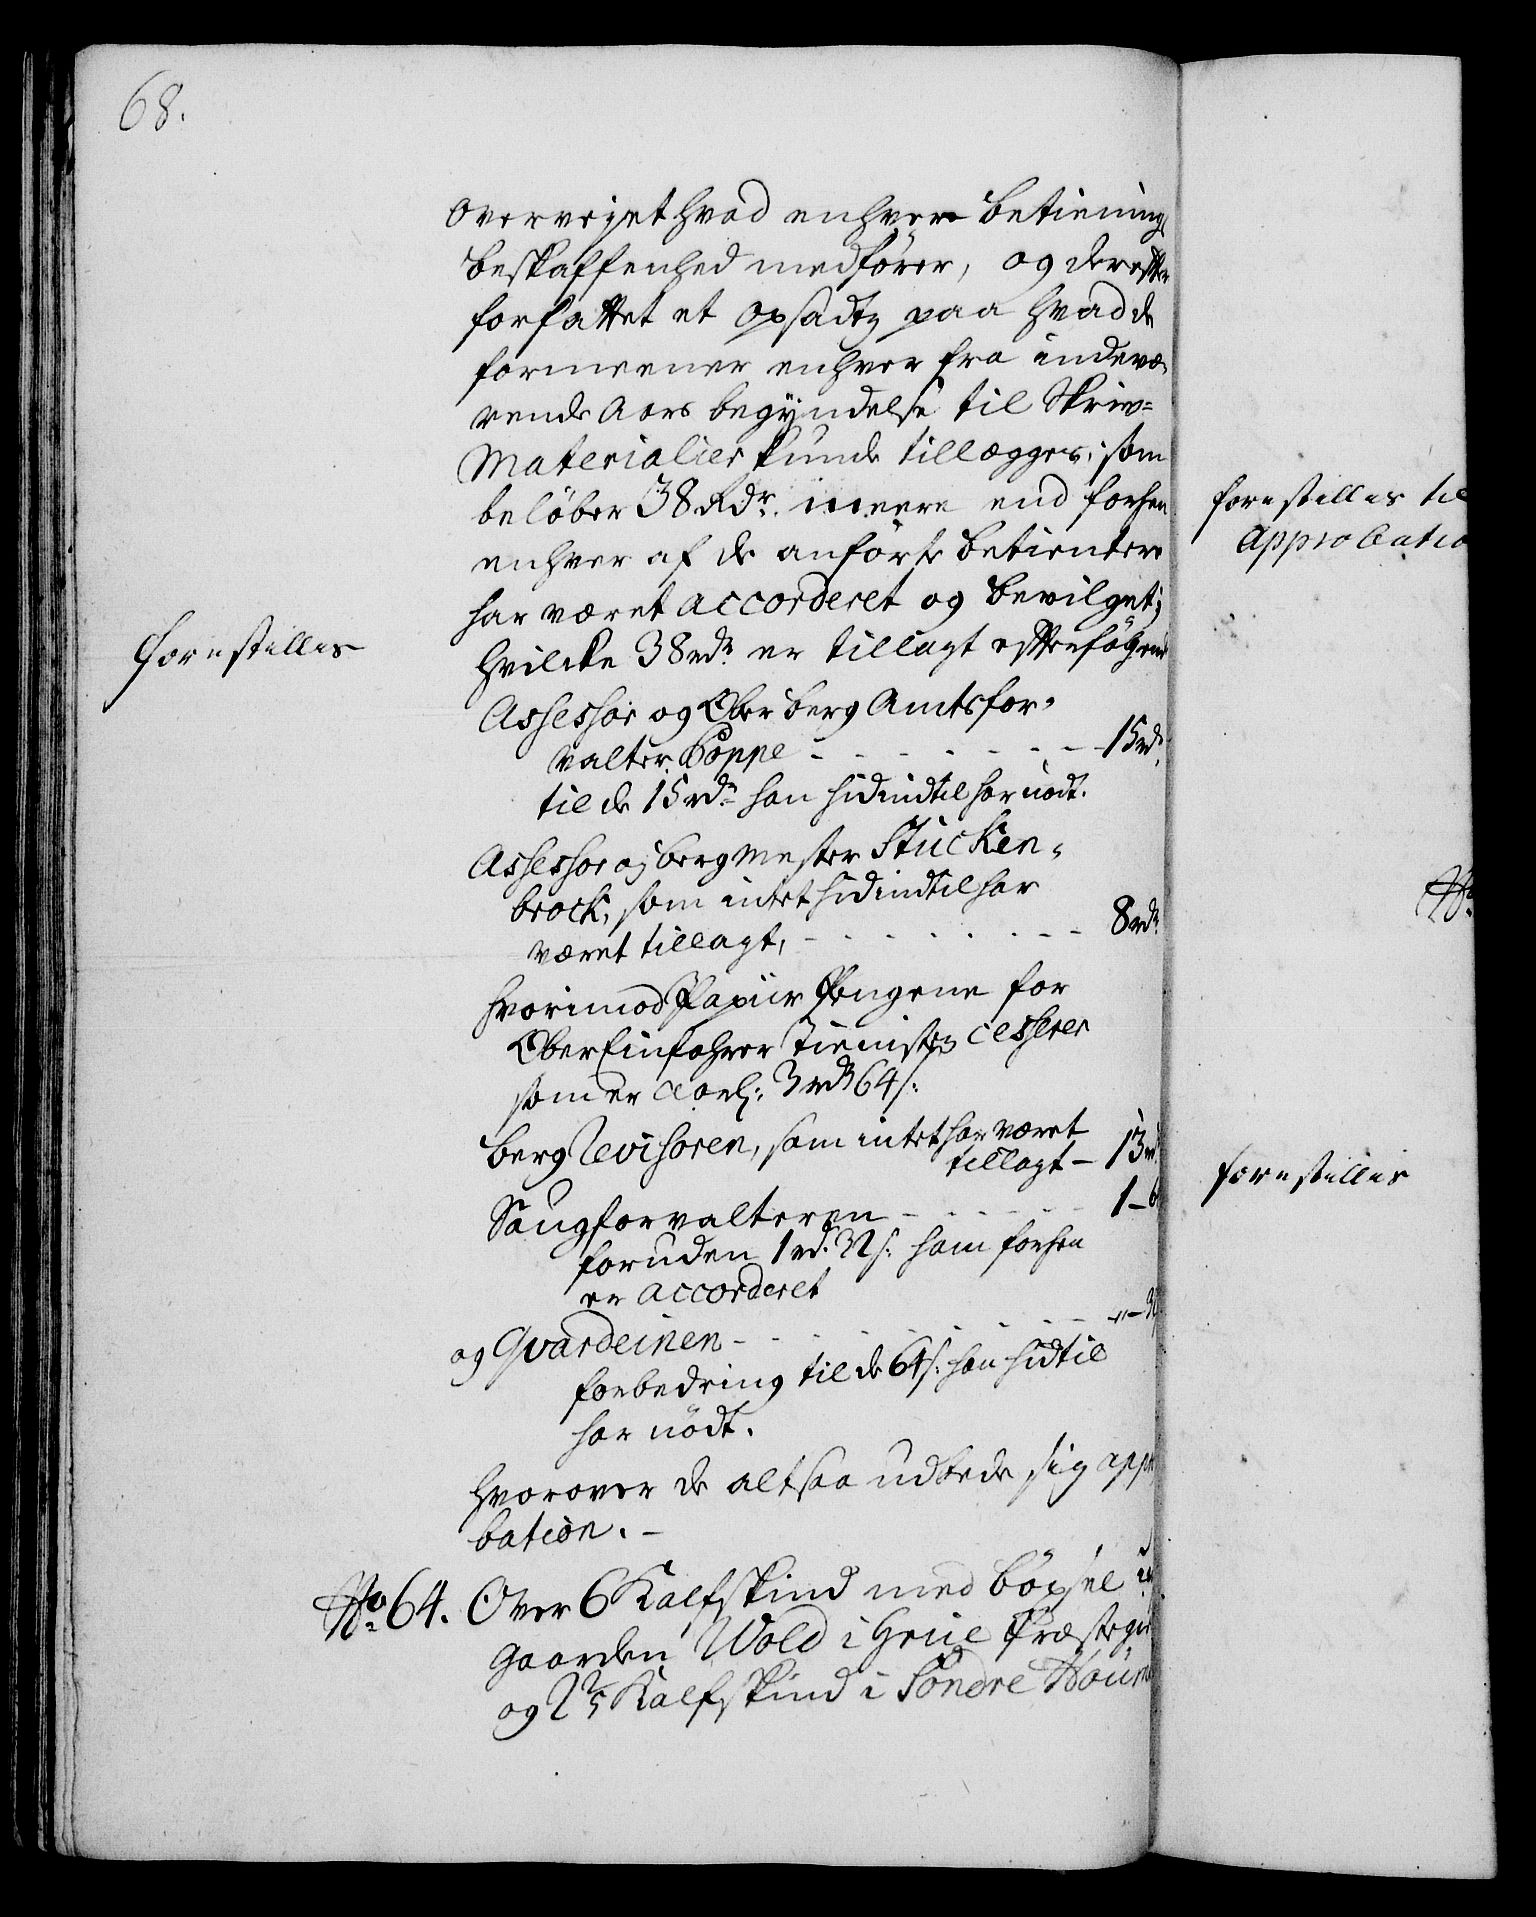 68.
overvejet hvad enhver betienings
beskaffenhed medfører, og derefter
forfattet et opsadtz paa hvad de
formeener enhver fra indevæ-
rende Aars begyndelse til Skriv=
Materialier kunde tillægges; som
beløber 38 Rdr. meere end forhen
enhver af de anførte betientere
har været accorderet og bevilget;
forestilles
hvilcke 38 rdr er tillagt efterfølgende
Assessor og Ober berg Amtsfor-
valter Poppe - - - - - - - 15 rdr.
til de 15 rdr han hidindtil har nødt.
Assessor og bergmester Stucken-
brock, som intet hidindtil har
været tillagt, - - - - - - - 8 rdr.
hvorimod Papiir Pengene for
Ober Einfahrer Tienisten cesserer
som er aarl: 3 rdr 64 s:
berg Revisoren, som intet har været
tillagt - 13 rd
Saugforvalteren - - - - - - 1 - 6
foruden 1 rd. 32 s: ham forhen
er accorderet
og Gvardeinen - - - - - - - " - 32
forbedring til de 64 s: han hidtil
har nødt.
hvorover de altsaa udbede sig appro
bation. -
No 64. Over 6 Kalfskind med bøxsel i
gaarden Wold i Grue Præstegi
og 2 2/5 Kalfskind i Søndre
forestilles til
Approbatio
No
forestilles